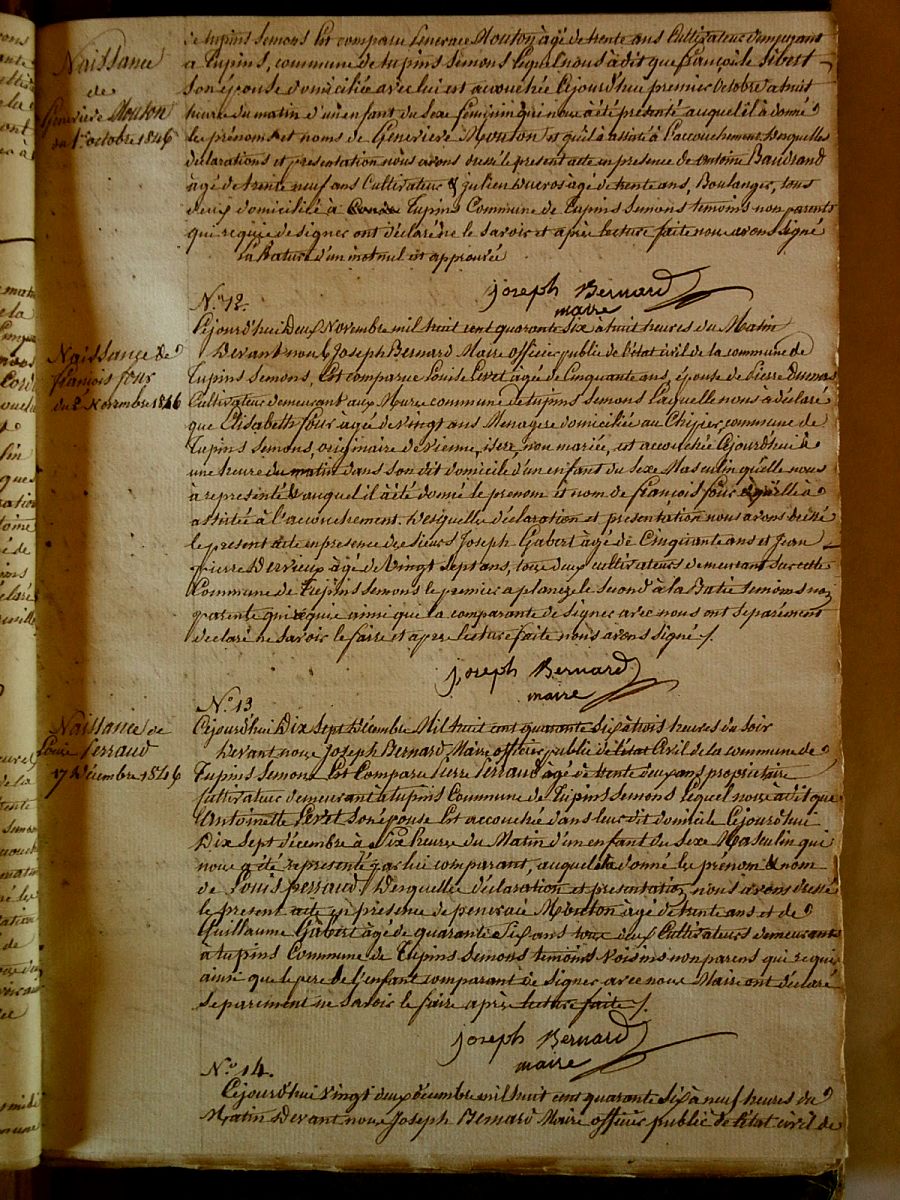 Naissance
de
Genevieve Mouton
du 1er octobre 1846
de tupins Semons Est comparu Mouton âgé de trente ans Cultivateur demeurant
à Tupins, commune de tupins Semons lequel nous à dit que françoise Sibert
son épouse domiciliée avec lui est accouchée Cejourd'hui premier octobre à huit
heures du matin d'un enfant du Sexe féminin qui nous à été présenté auquel il à donné
les prénoms et noms de Genevieve Mouton et qu'il à assisté à l'accouchement. Desquelles
déclarations et presentation nous avons dressé le present acte en presence de antoine Baudrand
âgé de trente neuf ans Cultivateur & julien Ducros âgé de trente ans, Boulanger, tous
deux domicilié à Tupins Commune de Tupins Semons temoins non parents
qui requis de signer ont déclaré ne le savoir et après lecture faite nous avons signé
La Rature d'un mot nul est approuvée
joseph Bernard
maire
N.º 12.
Cejourd'hui Deux Novembre mil huit cent quarante Six à huit heures du Matin
Naissance de
françois four
du 2 Novembre 1846
Devant nous Joseph Bernard Maire officier public de l'état civil de la commune de
Tupins Semons, Est comparue Louise Levet âgé de Cinquante ans, épouse de Pierre Dumas
Cultivateur demeurant aux Mures commune de tupins Semons laquelle nous a déclaré
que Elisabeth four âgé de vingt ans Menagere domiciliée au Chipier, commune de
Tupins Semons, originaire de Vienne, isere, non mariée, est accouchée Cejourd'hui à
une heure du matin dans son dit domicile d'un enfant du Sexe Masculin qu'elle nous
à representé & auquel il à été donné le prenom et nom de françois four & qu'elle à
assistée à l'accouchement. Desquelles déclaration et présentation nous avons dressé
le present acte en presence des Sieurs Joseph Gabert âgé de Cinquante ans et Jean
Pierre Dervieux âgé de Vingt Sept ans, tous deux cultivateurs demeurant Sur cette
Commune de Tupins Semons le premier a planeze le Second à la Batie temoins non
parents qui requis ainsi que la comparante de signer avec nous ont Separément
déclaré ne Savoir le faire et après lecture faite nous avons Signé ./.
joseph Bernard
maire
N.º 13
Naissance de
Louis Perraud
17 Décembre 1846
Cejourd'hui Dix Sept Décembre Mil huit cent quarante Six à trois heures du Soir
Devant nous Joseph Bernard, Maire officier public de l'état Civil de la commune de
Tupins Semons Est Comparu Pierre Perraud âgé de trente deux ans propriétaire
Cultivateur demeurant à tupins Commune de Tupins Semons lequel nous à dit que
Antoinette Levet Son épouse Est accouchée dans leur dit domicile Cejourd'hui
Dix Sept décembre à Six heures du Matin d'un enfant du Sexe Masculin qui
nous à été representé par lui comparant, auquel il a donné les prénom & nom
de Louis perraud. Desquelles déclaration et présentation nous avons dressé
le present acte en presence de Mouton âgé de trente ans et de
Guillaume Gabert âgé de quarante Six ans tous deux Cultivateurs demeurants
à tupins Commune de Tupins Semons temoins Voisins non parens qui requis
ainsi que le pere de l'enfant comparant de Signer avec nous Maire ont déclaré
Separément ne Savoir le faire après lecture faite ./.
joseph Bernard
maire
N.º 14.
Cejourd'hui vingt deux décembre mil huit cent quarante Six à neuf heures du
Matin Devant nous Joseph Bernard Maire officier public de l'état civil de